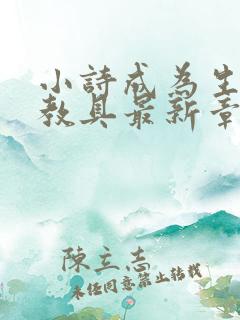 小詩成為生
教具最新章
陳立志
未经同意禁止转载